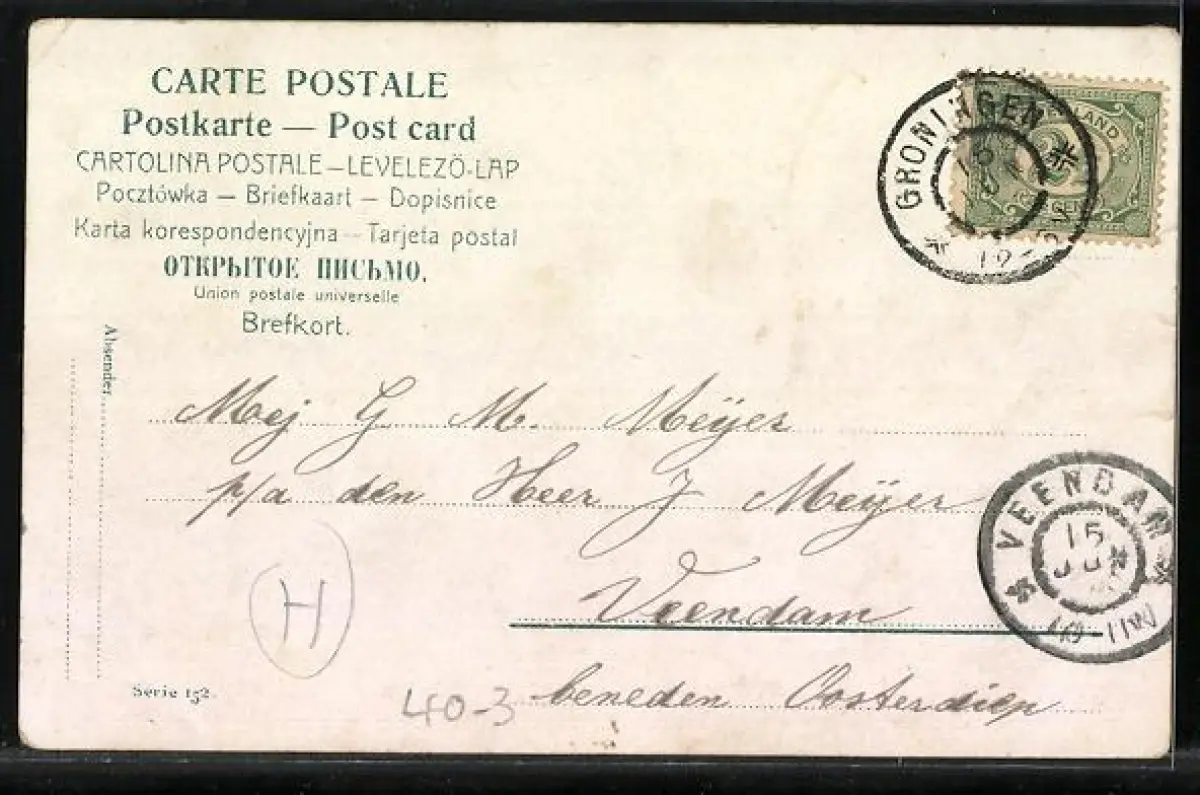 CARTE POSTALE
Postkarte — Post card
CARTOLINA POSTALE – LEVELEZÖ-LAP
Pocztówka — Briefkaart — Dopisnice
Karta korespondencyjna — Tarjeta postal
ОТКРЫТОЕ ПИСЬМО.
Union postale universelle
Brefkort.
GRONINGEN
Absender
Mej G. M. Meÿer
p/a den Heer J Meÿer
Veendam
beneden Oosterdiep
VEENDAM
15
H
Serie 152.
40-3